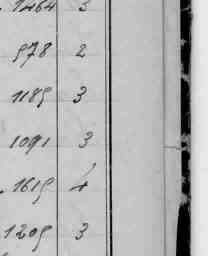 1264 3
978 2
1189 3
1091 3
1619 4
1209 3